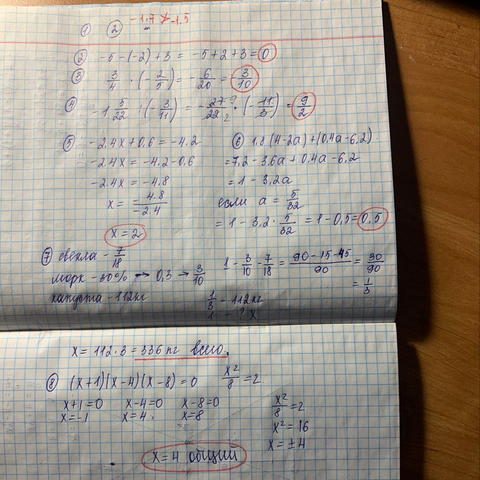 ① ② -1.7 > -1.5
② -5-(-2)+3 = -5+2+3 = 0
③ 3/4 · (-2/5) = -6/20 = 3/10
④ -1 5/22 : (-3/11) = -27/22 · (-11/3) = 9/2
⑤ -2.4x+0,6 = -4.2
-2.4x = -4.2-0,6
-2.4x = -4.8
x = -4.8/-2.4
x = 2
⑥ 1.8(4-2a)+(0.4a-6,2)
=7,2-3,6a+0,4a-6,2
=1-3,2a
если a = 5/32
=1-3,2·5/32 = 1-0,5=0,5
⑦ свекла - 7/18
морк - 30% → 0,3 → 3/10
капуста - 112кг
1 - 3/10 - 7/18 = 90-15-45/90 = 30/90
= 1/3
1/3 - 112кг
1 - ? x
x = 112·3 = 336 кг всего.
⑧ (x+1)(x-4)(x-8)=0 x²/8=2
x+1=0 x-4=0 x-8=0
x=-1 x=4 x=8
x²/8=2
x²=16
x=±4
x=4 общий